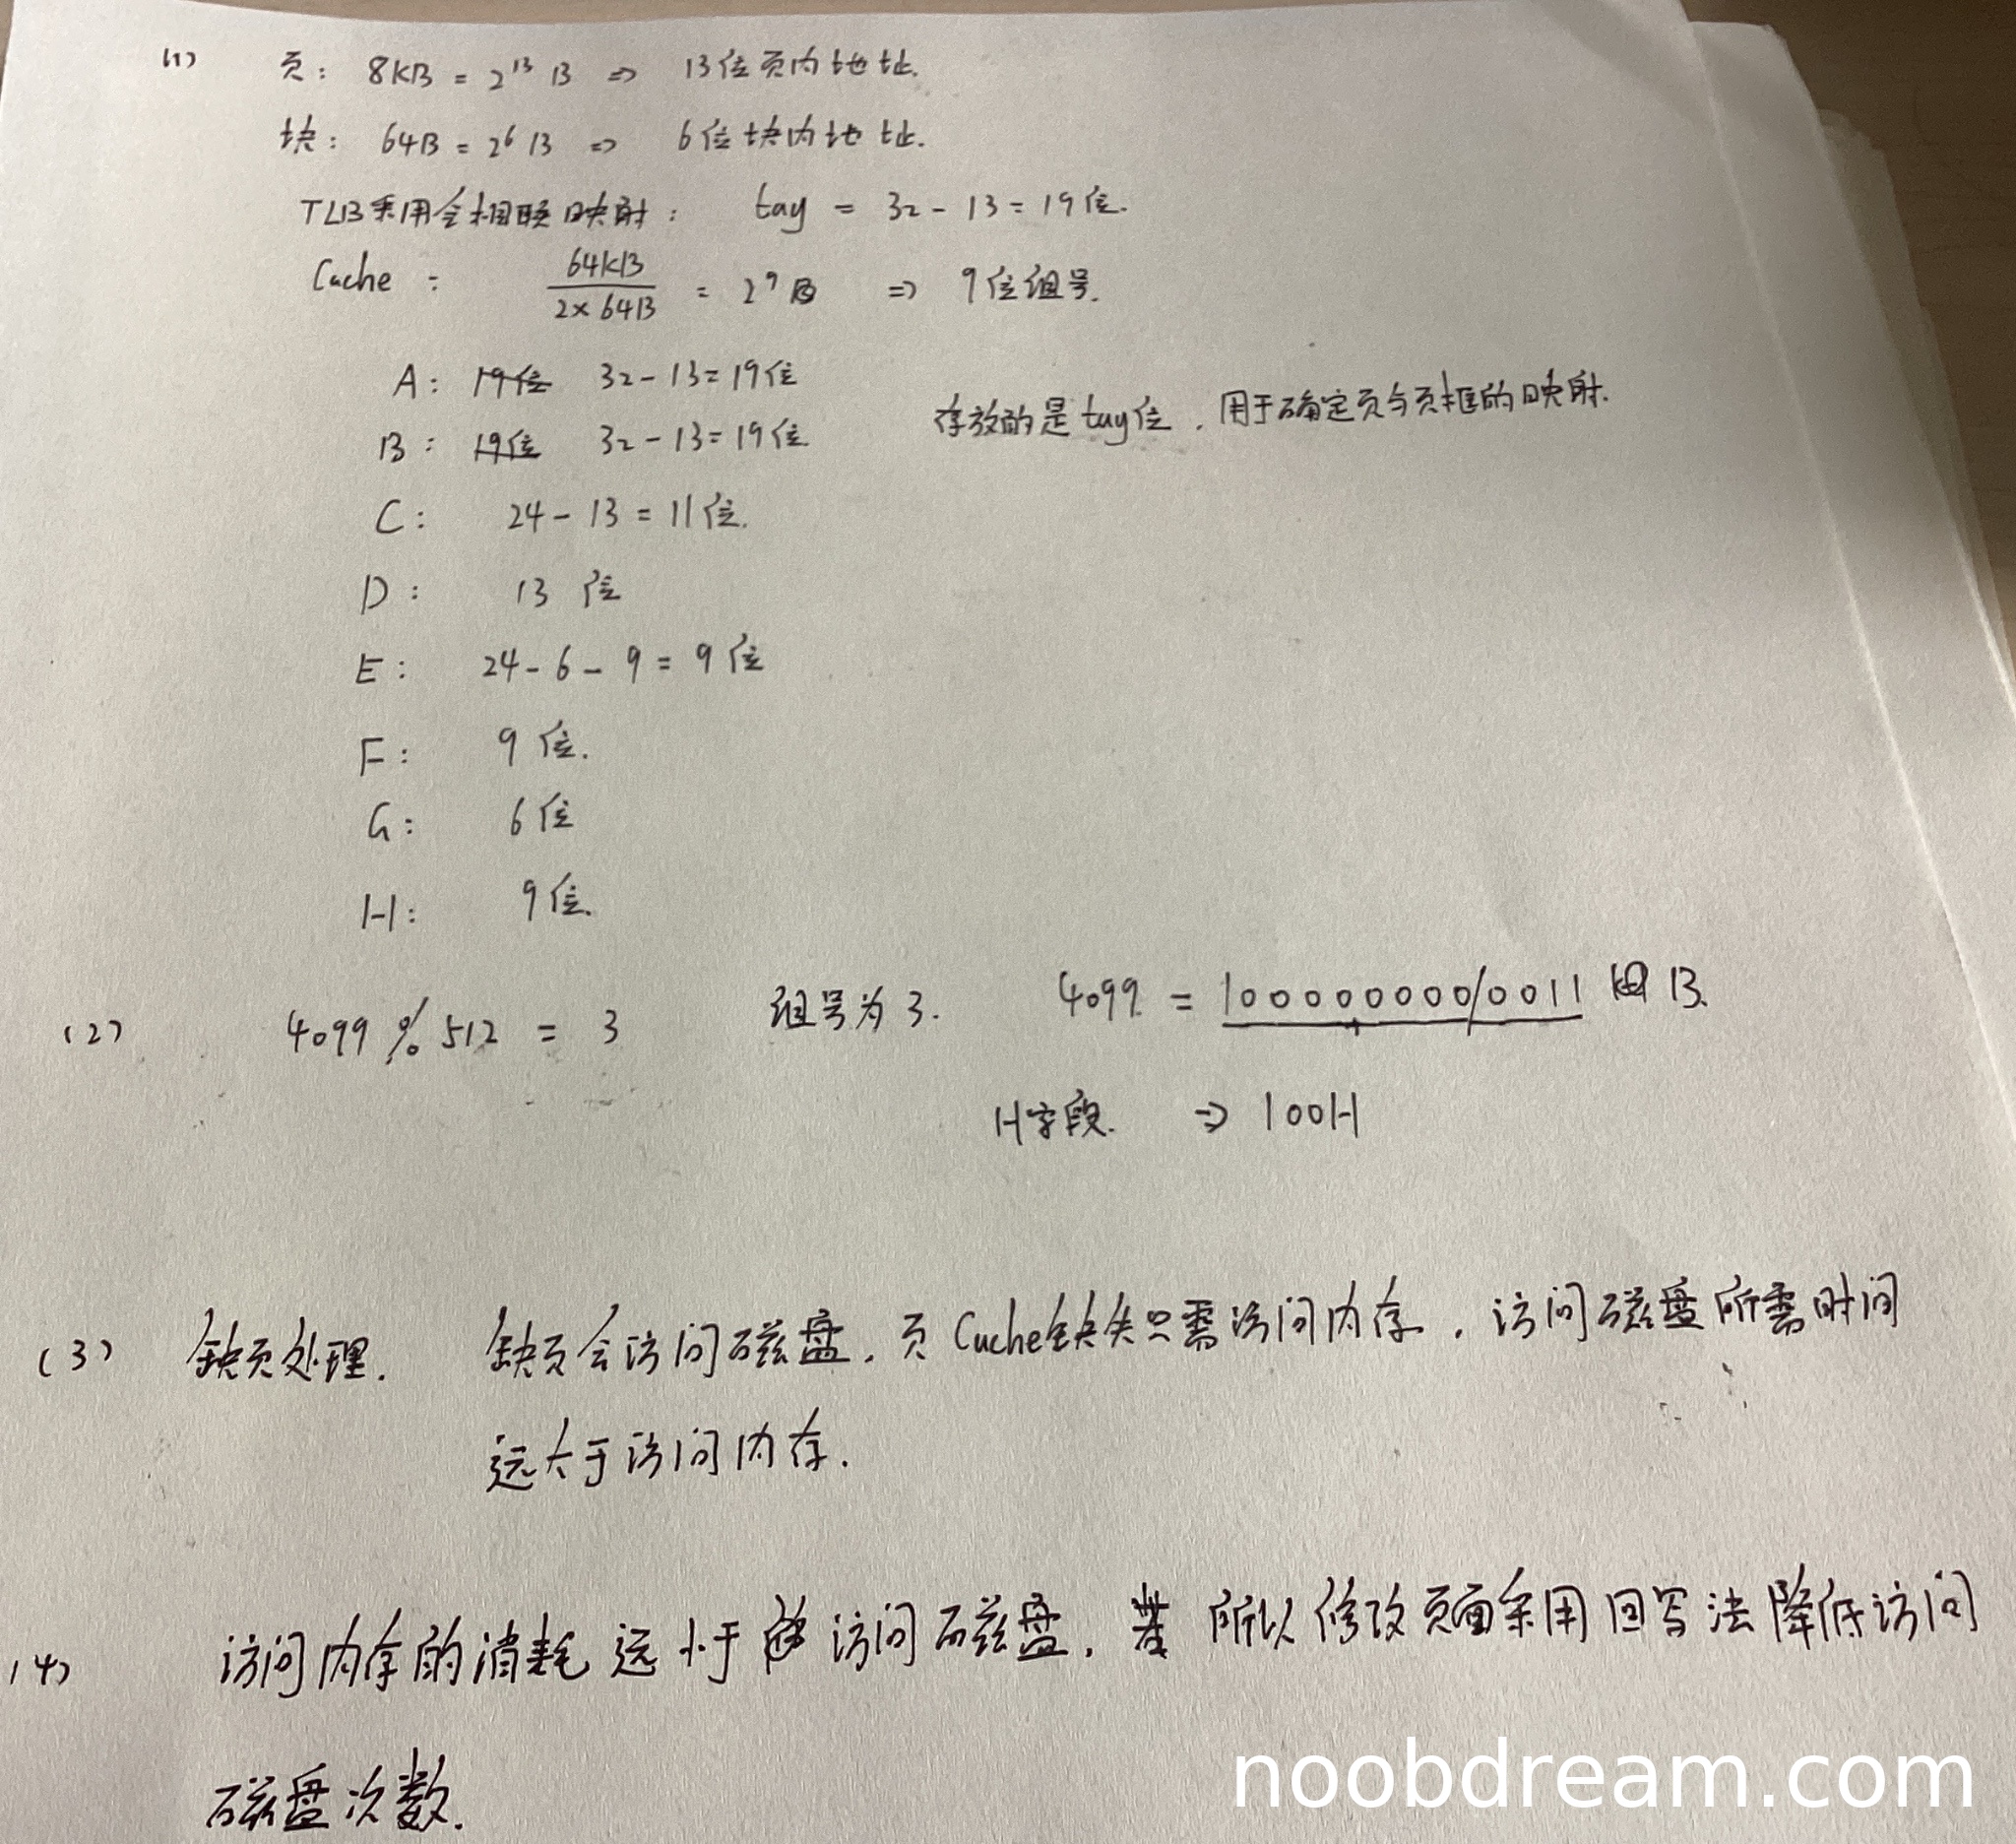 (1) 页: 8KB = 2^13 B => 13位页内地址.
块: 64B = 2^6 B => 6位块内地址.
TLB采用全相联映射: tag = 32-13=19位.
Cache: 64KB / 2×64B = 2^9 => 9位组号.
A: 19位 32-13=19位
B: 19位 32-13=19位 存放的是tag位,用于确定页与页框的映射.
C: 24-13=11位.
D: 13位
E: 24-6-9=9位
F: 9位.
G: 6位
H: 9位.
(2) 4099 % 512 = 3 组号为3. 4099 = 100000000/0011 B.
H字段. => 100H
(3) 缺页处理. 缺页会访问磁盘,页Cache缺失只需访问内存,访问磁盘所需时间
远大于访问内存.
(4) 访问内存的消耗远小于访问磁盘,所以修改页面采用回写法降低访问
磁盘次数.
noobdream.com